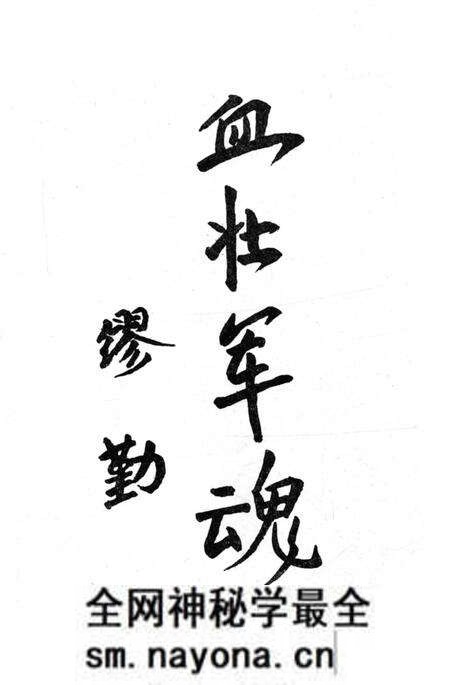 血壮军魂
缪勤
全网神秘学最全
sm.nayona.cn